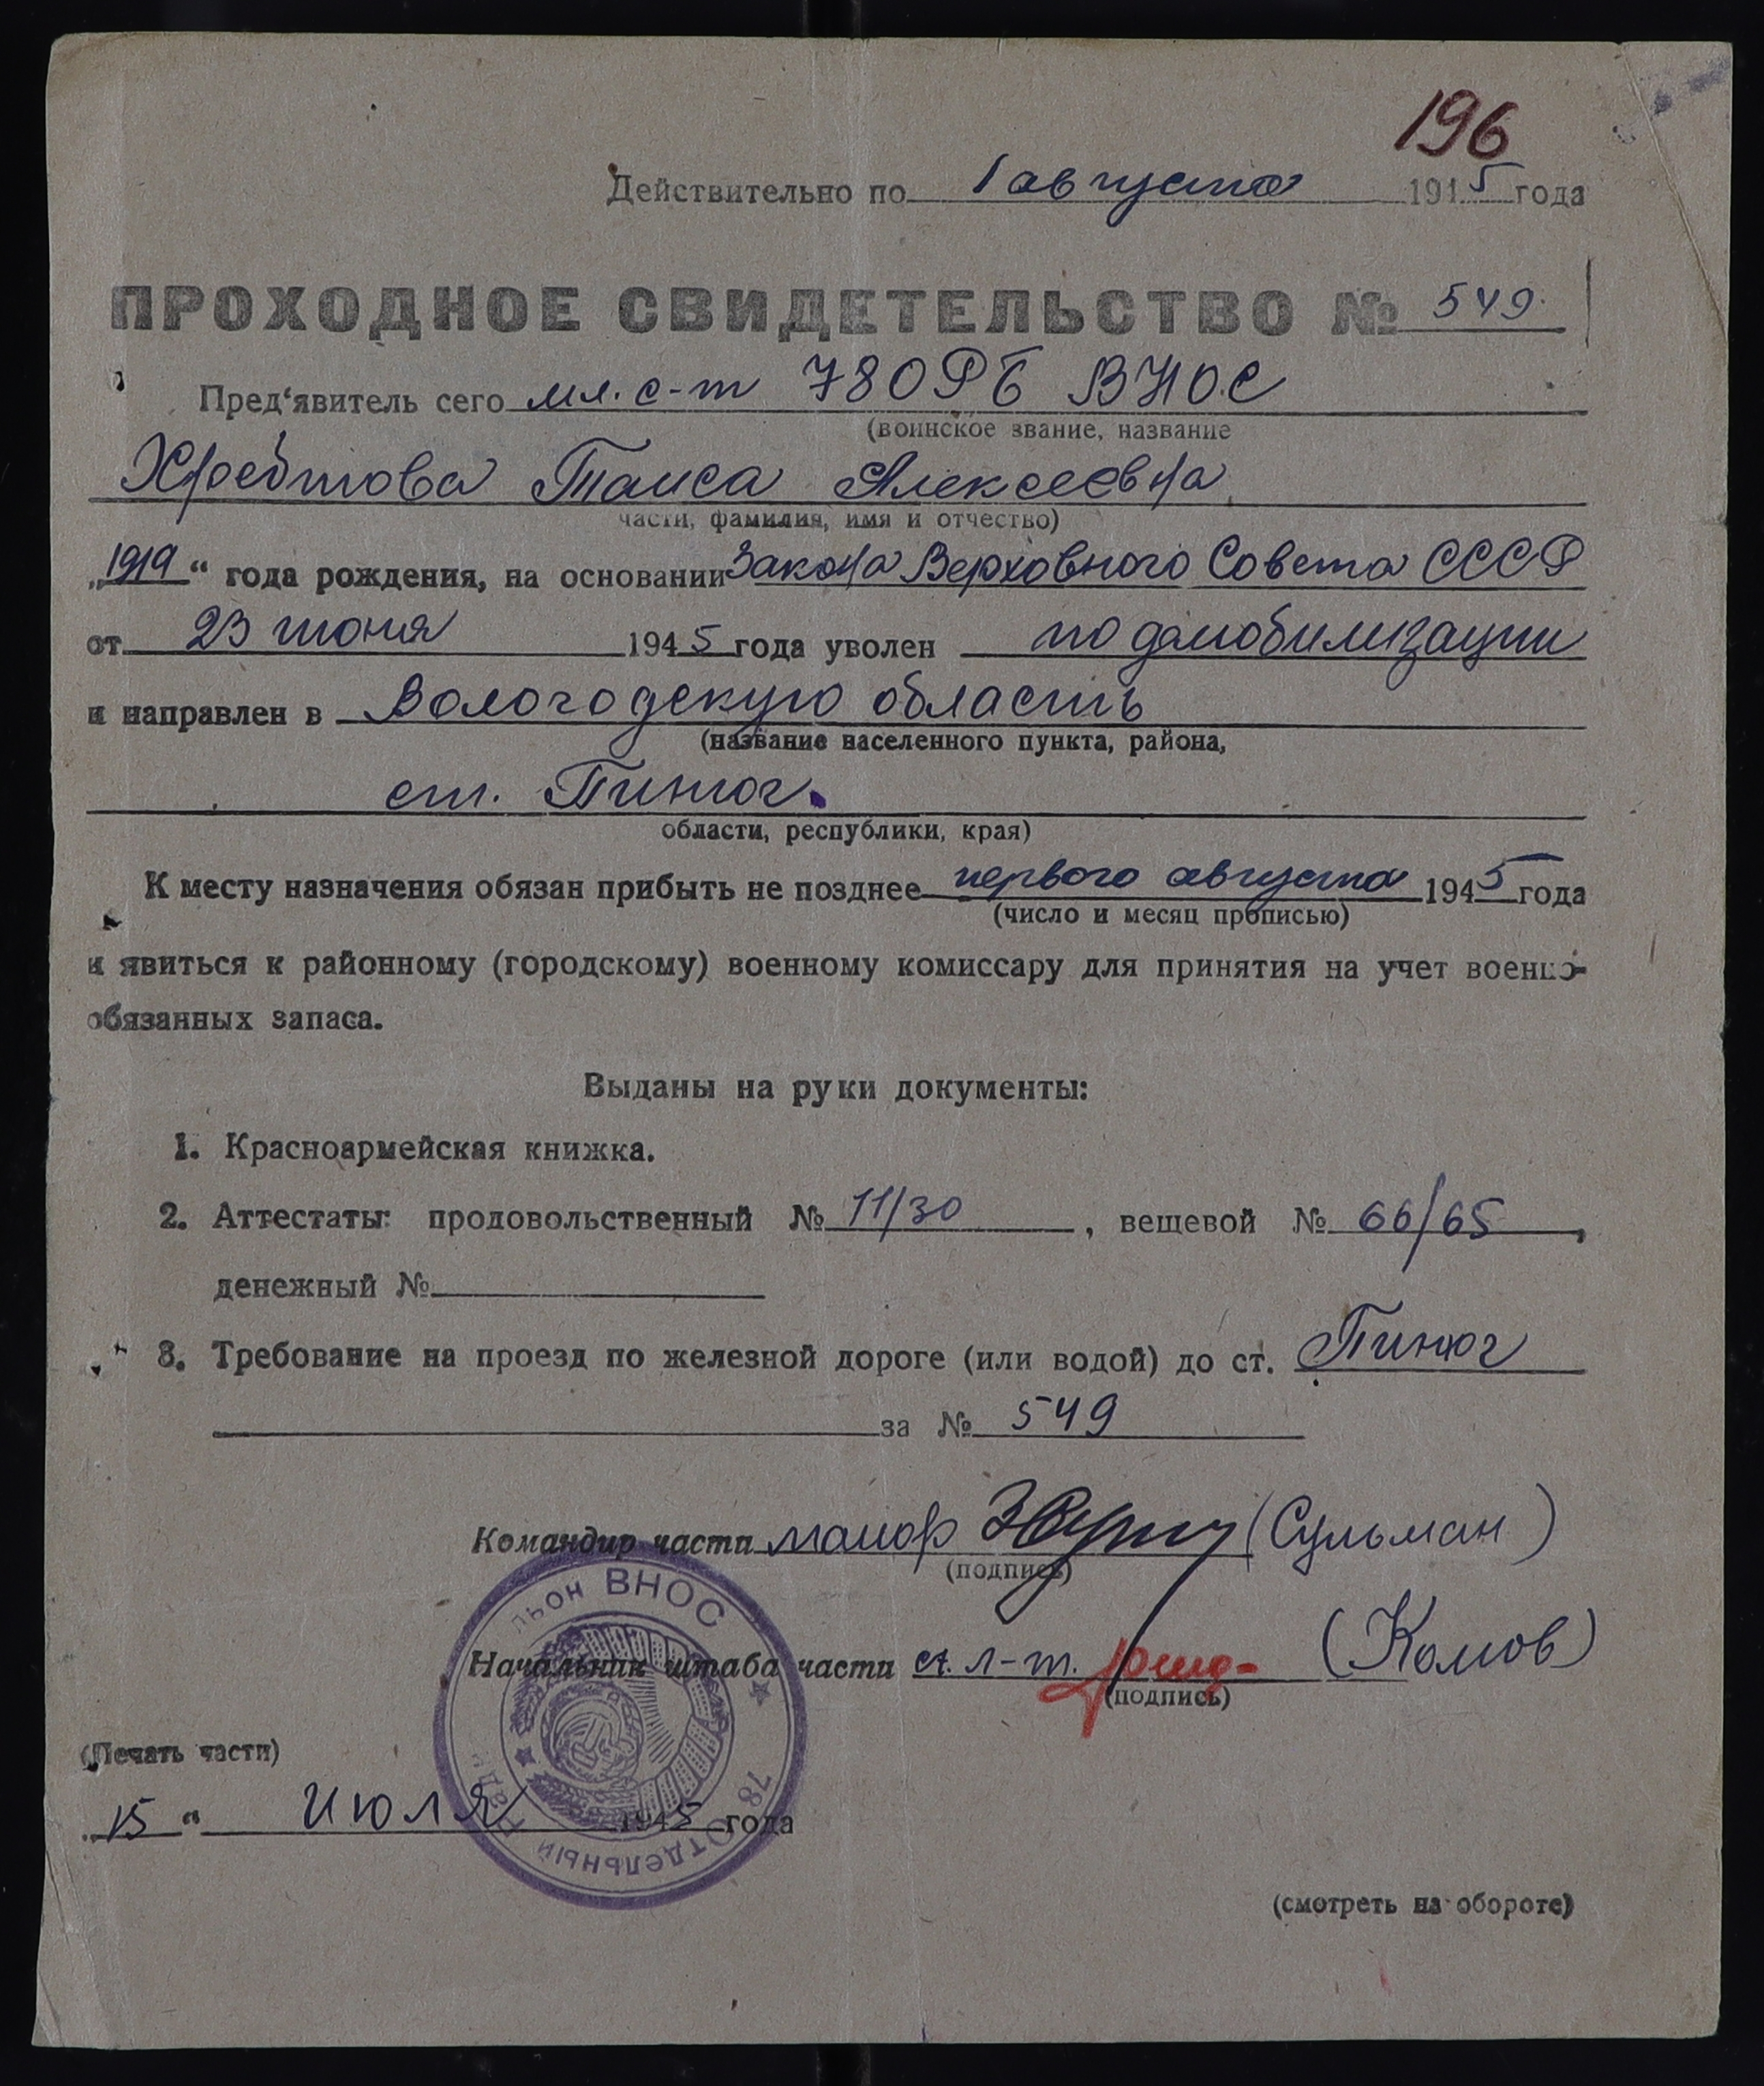 196
Действительно по 1 августа 1945 года
ПРОХОДНОЕ СВИДЕТЕЛЬСТВО № 549
Пред‘явитель сего мл. с-т 78 ОРБ ВНОС
(воинское звание, название
Хребтова Таиса Алексеевна
части, фамилия, имя и отчество)
„1919“ года рождения, на основании Закона Верховного Совета СССР
от 23 июня 1945 года уволен по демобилизации
и направлен в Вологодскую область
(название населенного пункта, района,
ст. Пинюг.
области, республики, края)
К месту назначения обязан прибыть не позднее первого августа 1945 года
(число и месяц прописью)
и явиться к районному (городскому) военному комиссару для принятия на учет военно-
обязанных запаса.
Выданы на руки документы:
1. Красноармейская книжка.
2. Аттестаты: продовольственный № 11/30, вещевой № 66/65,
денежный №
3. Требование на проезд по железной дороге (или водой) до ст. Пинюг
за № 549
Командир части майор (Сульман)
(подпись)
Начальник штаба части ст. л-т. (Комов)
(подпись)
(Печать части)
„15“ июля 1945 года
78 ОТДЕЛЬНЫЙ ВНОС
(смотреть на обороте)